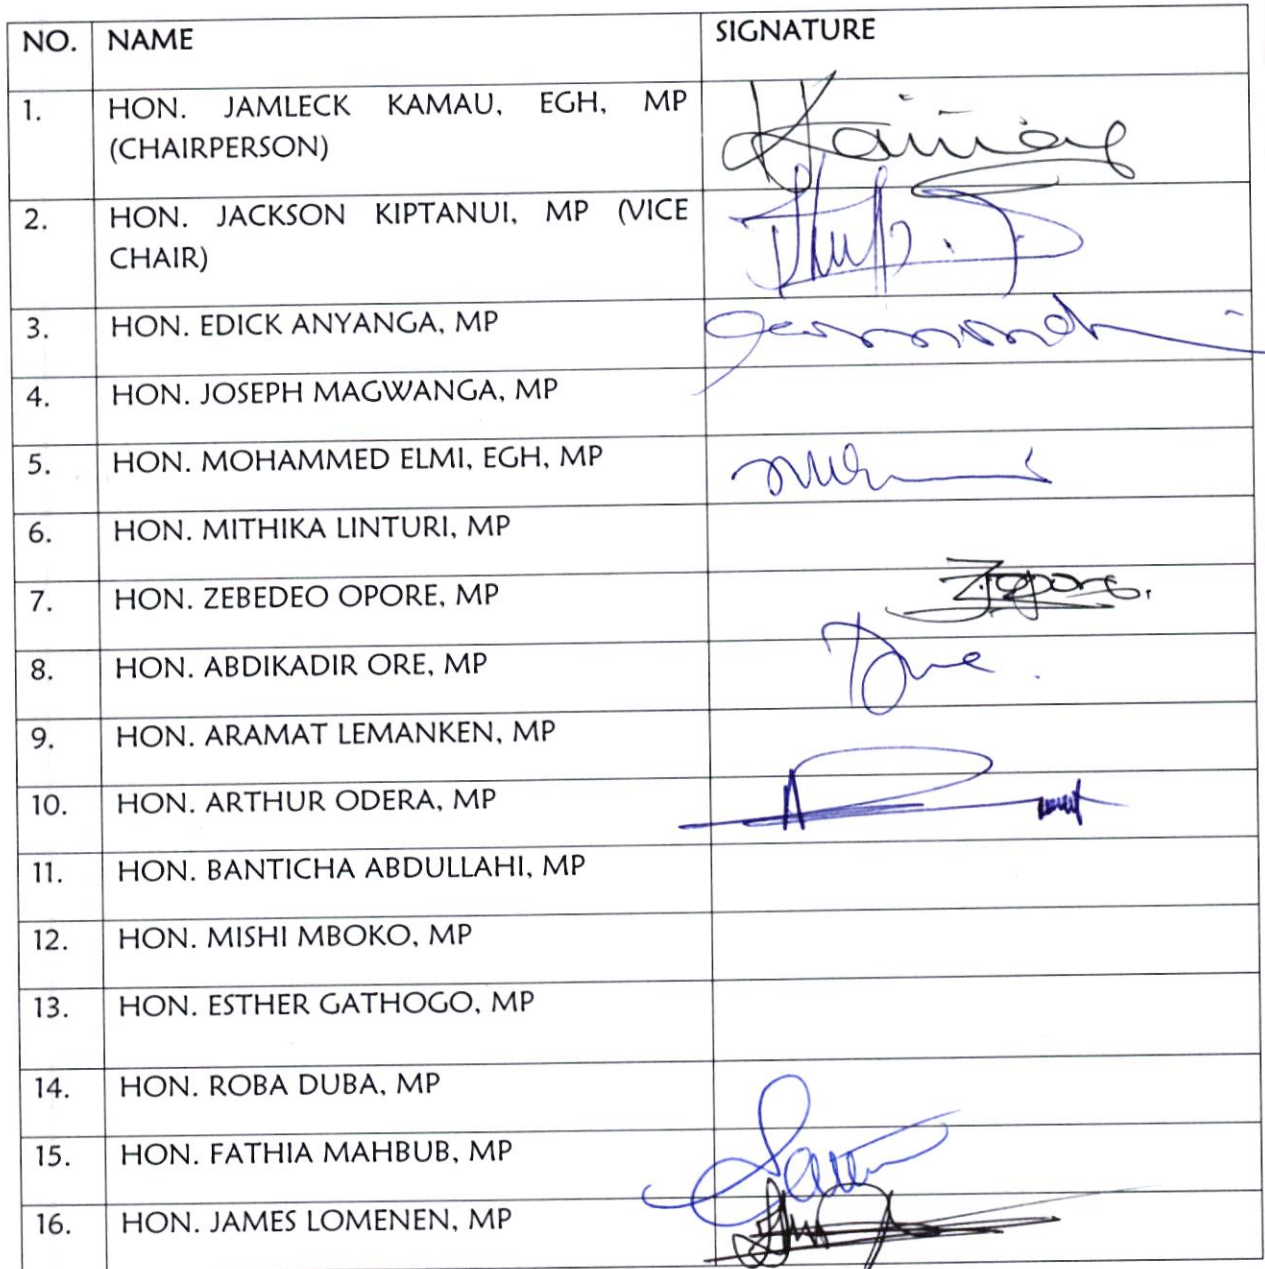 NO. NAME SIGNATURE
1. HON. JAMLECK KAMAU, EGH, MP
(CHAIRPERSON)
2. HON. JACKSON KIPTANUI, MP (VICE
CHAIR)
3. HON. EDICK ANYANGA, MP
4. HON. JOSEPH MAGWANGA, MP
5. HON. MOHAMMED ELMI, EGH, MP
6. HON. MITHIKA LINTURI, MP
7. HON. ZEBEDEO OPORE, MP
8. HON. ABDIKADIR ORE, MP
9. HON. ARAMAT LEMANKEN, MP
10. HON. ARTHUR ODERA, MP
11. HON. BANTICHA ABDULLAHI, MP
12. HON. MISHI MBOKO, MP
13. HON. ESTHER GATHOGO, MP
14. HON. ROBA DUBA, MP
15. HON. FATHIA MAHBUB, MP
16. HON. JAMES LOMENEN, MP